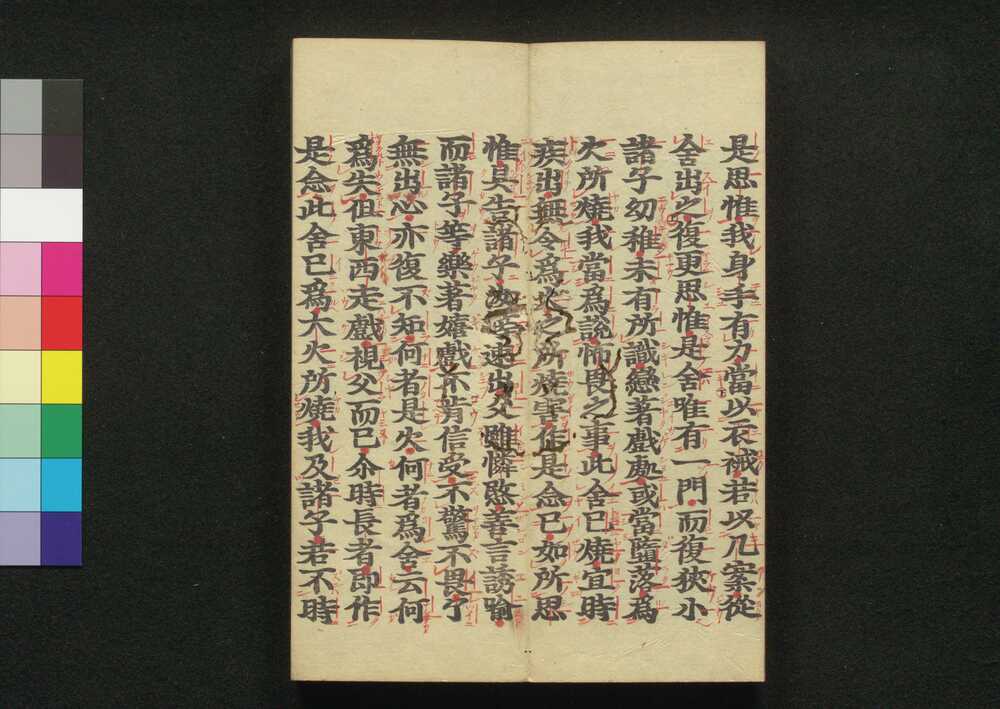 是思惟我身手有力當以衣裓若以几案從
舍出之復更思惟是舍唯有一門而復狹小
諸子幼稚未有所識戀著戲處或當墮落為
火所燒我當為說怖畏之事此舍已燒宜時
疾出無令為火之所燒害作是念已如所思
惟具告諸子汝等速出父雖憐愍善言誘喻
而諸子等樂著嬉戲不肯信受不驚不畏了
無出心亦復不知何者是火何者為舍云何
為失但東西走戲視父而已尒時長者即作
是念此舍已為大火所燒我及諸子若不時